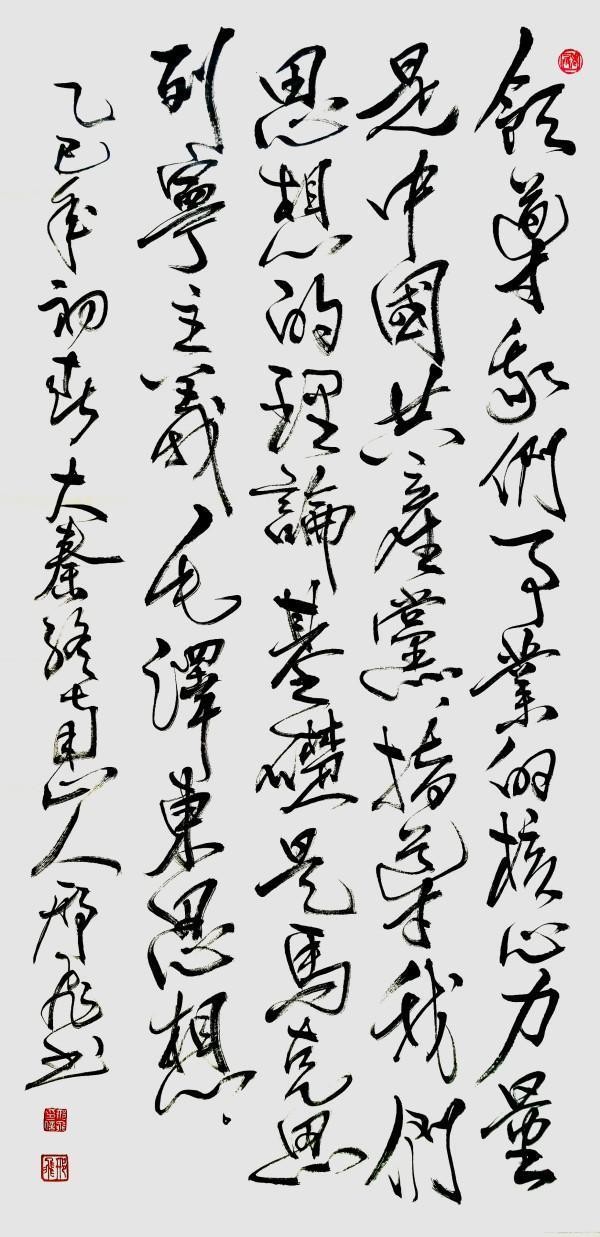 領導我們事業的核心力量
是中國共產黨、指導我們
思想的理論基礎是馬克思
列寧主義、毛澤東思想。
乙巳年初春大秦山人邢飛書